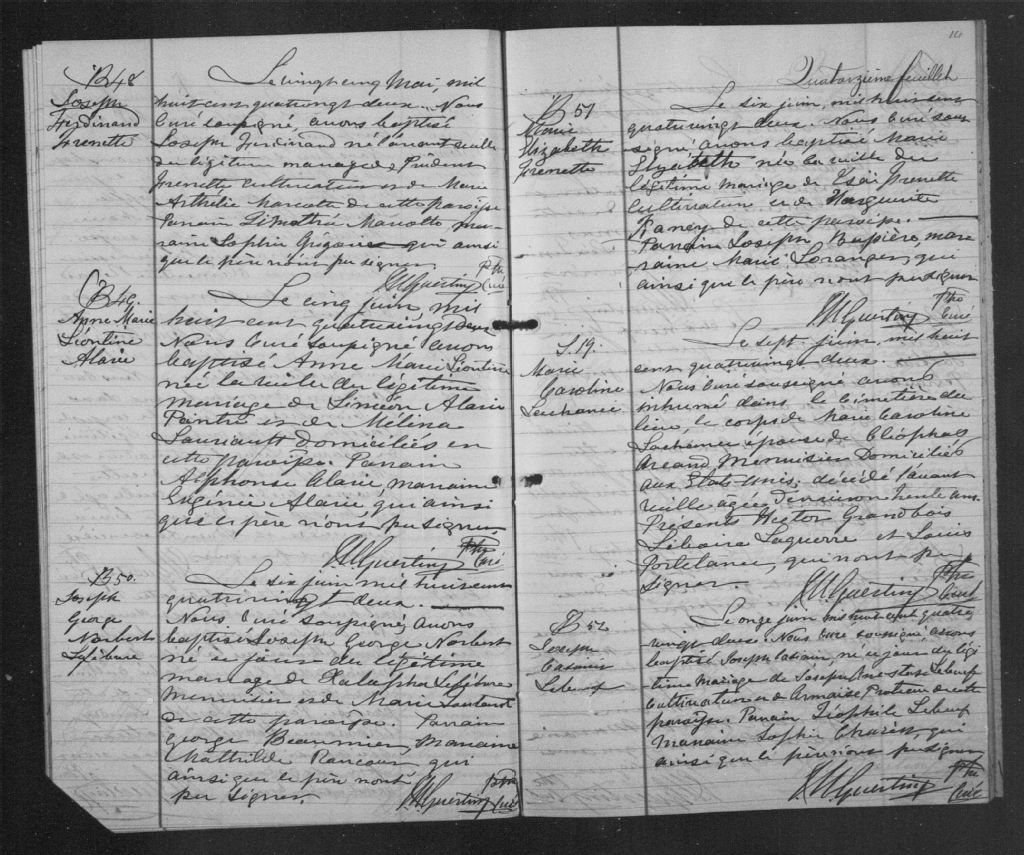 B 48
Joseph
Ferdinand
Frenette
Le vingt cinq Mai, mil
huit cent quatrevingt deux. Nous
Curé soussigné, avons baptisé
Joseph Ferdinand né l'avant veille
du légitime mariage de Prudent
Frenette cultivateur et de Marie
Arthelie Marcotte de cette paroisse
Parrain Timothé Marcotte mar-
raine Sophie qui ainsi
que le père n'ont pu signer
JM Guertin Ptre
Curé
B 49.
Anne Marie
Léontine
Alarie
Le cinq juin, mil
huit cent quatrevingt deux
Nous Curé soussigné avons
baptisé Anne Marie Léontine
née la veille du légitime
mariage de Siméon Alarie
Peintre et de Mélina
Lauriault domiciliés en
cette paroisse. Parrain
Alphonse Alarie, marraine
Eugénie Alarie, qui ainsi
que le père n'ont pu signer
JM Guertin Ptre
Curé
B 50.
Joseph
George
Norbert
Lefebvre
Le six juin mil huit cent
quatrevingt deux.
Nous Curé soussigné, avons
baptisé Joseph George Norbert
né ce jour du légitime
mariage de Lefebvre
Menuisier et de Marie
de cette paroisse. Parrain
George Beaumier, Marraine
Mathilde Rancour qui
ainsi que le père n'ont
pu signer.
JM Guertin Ptre
Curé
14
Quatorzième feuillet
B 51
Marie
Elizabeth
Frenette
Le six juin, mil huit cent
quatrevingt deux. Nous Curé sous-
signé, avons baptisé Marie
Elizabeth née la veille du
légitime mariage de Isaï Frenette
Cultivateur et de Marguerite
de cette paroisse.
Parrain Joseph mar-
raine Marie Loranger, qui
ainsi que le père n'ont pu signer
JM Guertin Ptre
Curé
S. 19.
Marie
Caroline
Lachance
Le sept juin, mil huit
cent quatrevingt deux.
Nous Curé soussigné avons
inhumé dans le Cimetière du
lieu, le corps de Marie Caroline
Lachance épouse de Cléophas
Arcand Menuisier Domiciliés
aux États-Unis, décédé l'avant
veille âgée d'environ trente ans.
Présents Hector Grandbois
Liboire Laguerre et Louis
Portelance, qui n'ont pu
signer.
JM Guertin Ptre
Curé
B 52
Joseph
Casimir
Lebeuf
Le onze juin mil huit cent quatre
vingt deux. Nous Curé soussigné avons
baptisé Joseph Casimir, né ce jour du légi
time mariage de Joseph Anastase Lebeuf
Cultivateur et de de cette
paroisse. Parrain Théophile Lebeuf
Marraine Sophie qui
ainsi que le père n'ont pu signer
JM Guertin Ptre
Curé